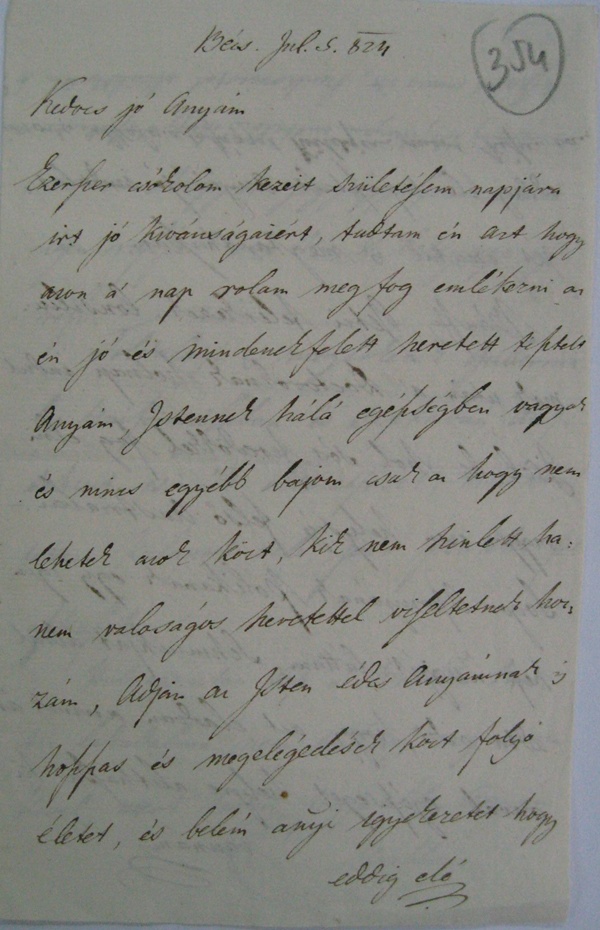 Bécs. Jul. 5. 824
354
Kedves jó Anyám
Ezerszer csókolom kezeit születésem napjára
irt jó kivánságaiért, tudtam én azt hogy
azon a' nap rolam meg fog emlékezni az
én jó és mindenekfelett szeretett tisztelt
Anyám, Istennek hálá egésségben vagyok
és nincs egyébb bajom csak az hogy nem
lehetek azok közt, kik nem szinlett ha:
nem valoságos szeretettel viseltetnek hoz:
zám, Adjon az Isten édes Anyámnak is
hosszas és megelégedések közt folyó
életet, és belém anyi igyekezetet hogy
eddig elé